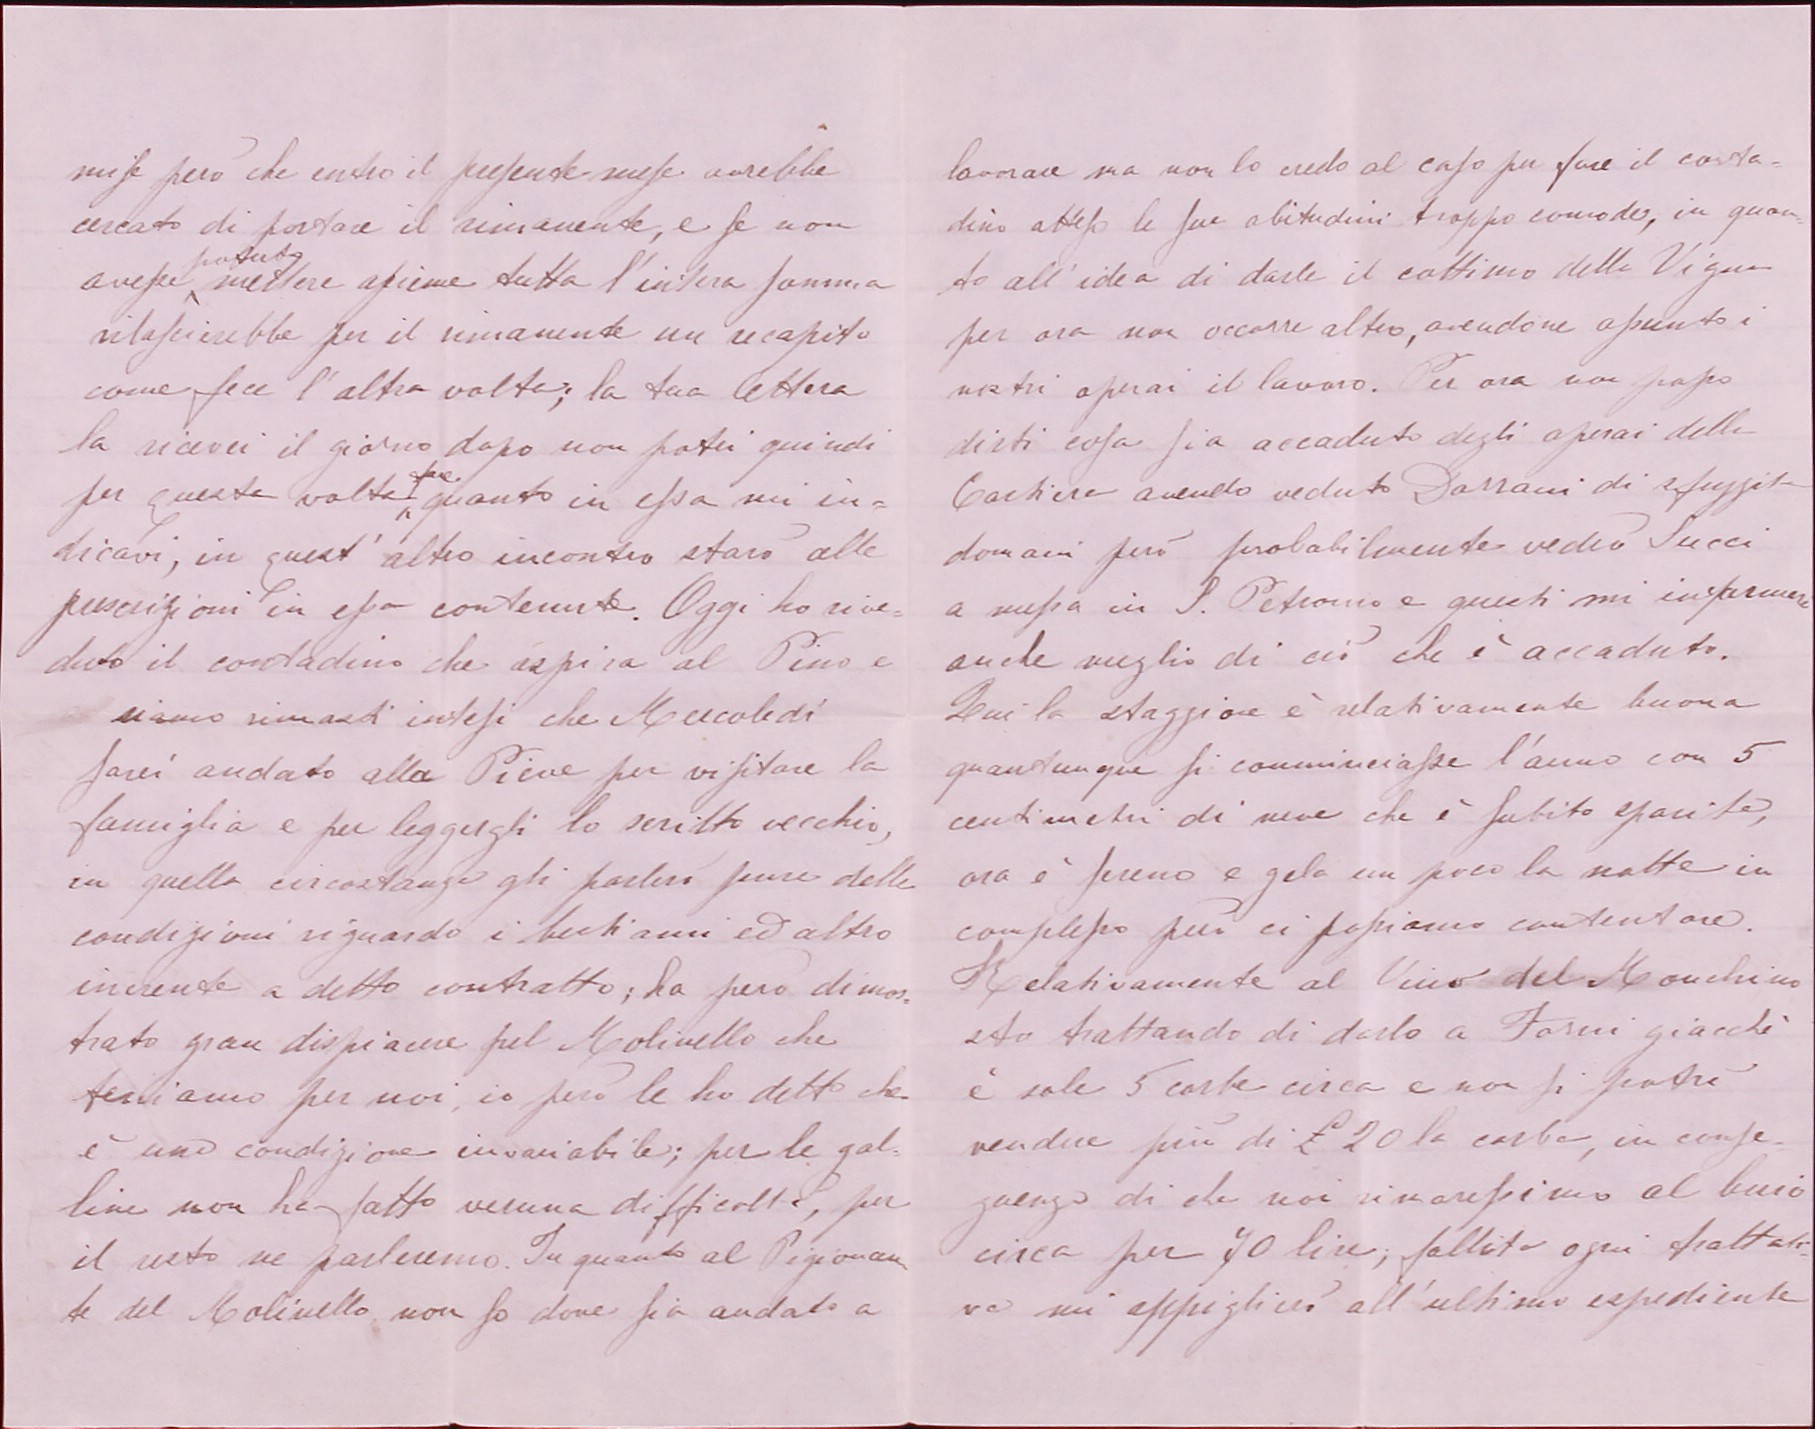 mise però che entro il presente mese avrebbe
cercato di portare il rimanente, e se non
avesse potuto mettere assieme tutta l'intera somma
rilascierebbe per il rimanente un recapito
come fece l'altra volta; la tua lettera
la ricevei il giorno dopo non potei quindi
per questa volta fare quanto in essa mi in=
dicavi, in quest'altro incontro starò alle
prescrizioni in essa contenute. Oggi ho rive=
duto il contadino che aspira al Pino e
siamo rimasti intesi che Mercoledì
sarei andato alla Pieve per visitare la
famiglia e per leggergli lo scritto vecchio,
in quella circostanza gli parlerò pure delle
condizioni riguardo i bestiami ed altro
inerente a detto contratto; ha però dimos=
trato gran dispiacere pel Molinello che
teniamo per noi, io però le ho detto che
è una condizione invariabile; per le gal=
line non ha fatto veruna difficoltà, per
il resto ne parleremo. In quanto al Pigionan
te del Molinello non so dove sia andato a
lavorare ma non lo credo al caso per fare il conta=
dino atteso le sue abitudini troppo comode, in quan=
to all'idea di darle il cottimo della Vigna
per ora non occorre altro, avendone assunto i
nostri operai il lavoro. Per ora non posso
dirti cosa sia accaduto degli operai della
Cartiera avendo veduto Dassani di sfuggita
domani però probabilmente vedrò Succi
a messa in S. Petronio e questi mi informerà
anche meglio di ciò che è accaduto.
Qui la staggione è relativamente buona
quantunque si comminciasse l'anno con 5
centimetri di neve che è subito sparita,
ora è sereno e gela un poco la notte in
complesso però ci possiamo contentare.
Relativamente al Vino del Monchino
sto trattando di darlo a Forni giacchè
è sole 5 corbe circa e non si potrà
vendere più di £ 20 la corba, in conse=
guenza di che noi rimaressimo al buio
circa per 70 lire; fallita ogni trattati=
va mi appiglierò all'ultimo espediente